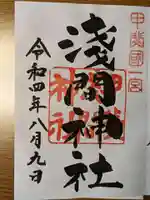 甲斐國一宮
淺間神社
令和四年八月九日